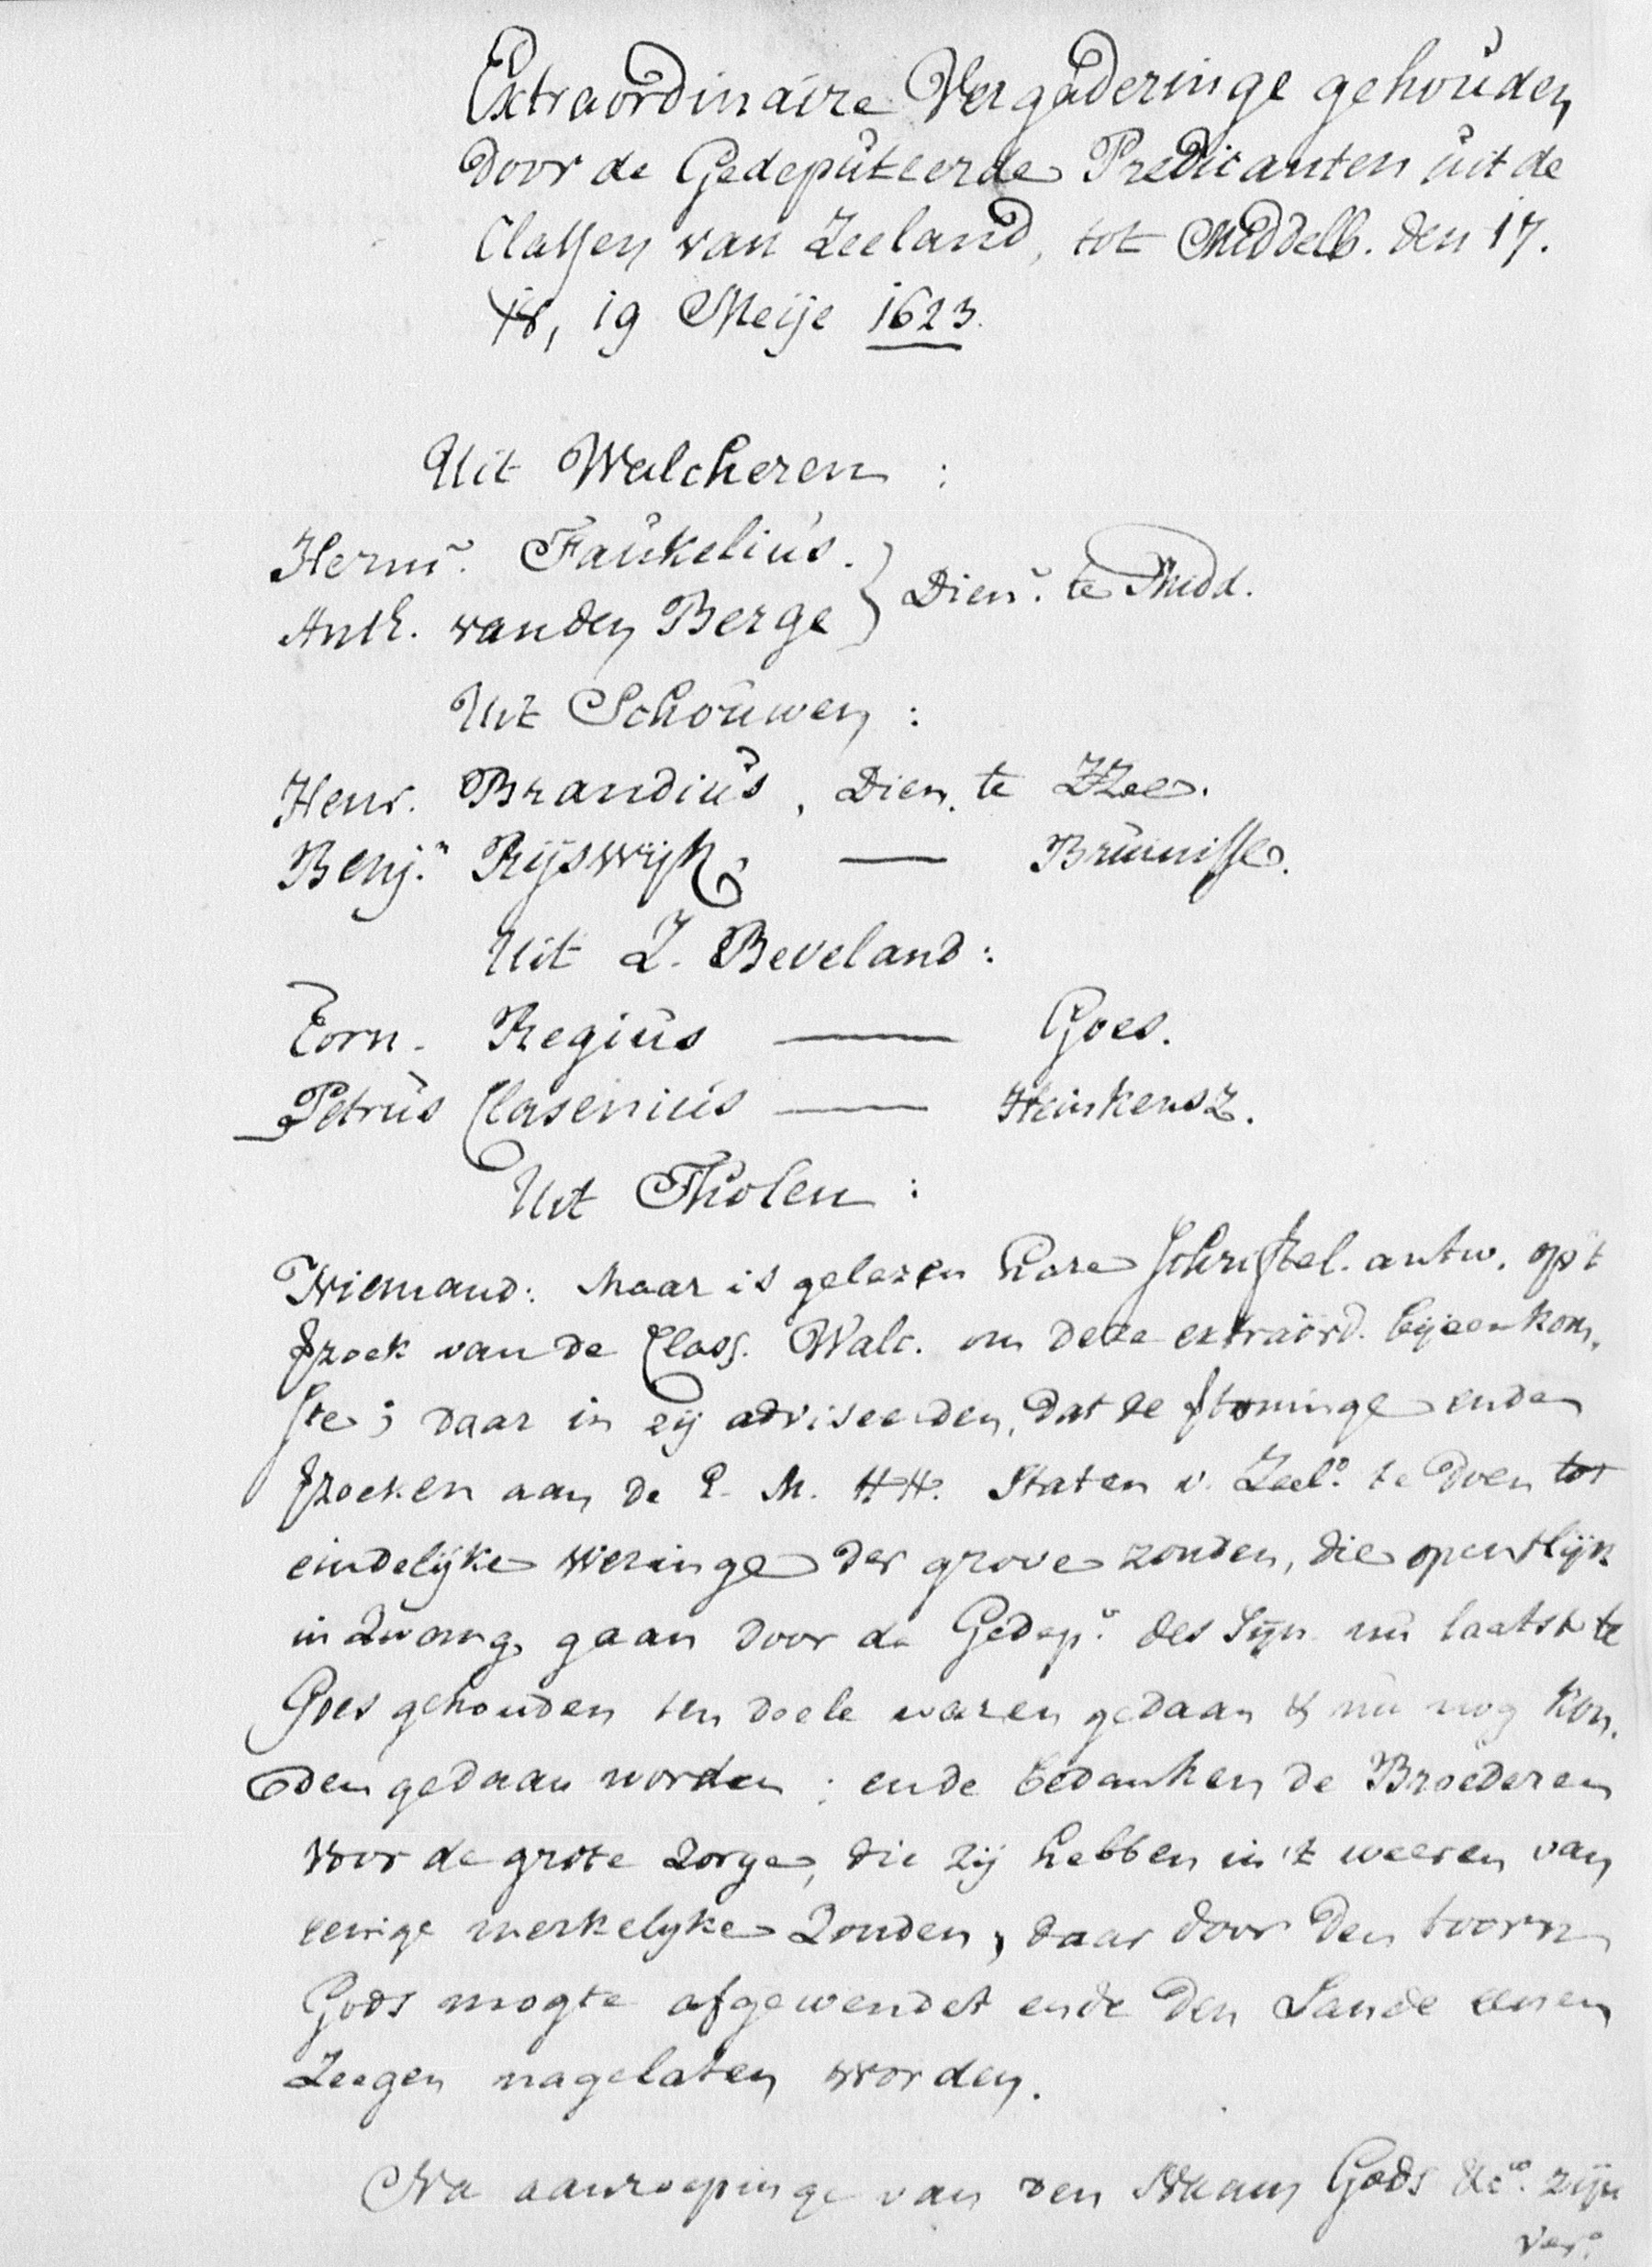 Extraordinaire Vergaderinge gehouden
Door de Gedeputeerde Predicanten uit de
Classen van Zeeland, tot Middelb. den 17.
18, 19 Meije 1623.
Uit Walcheren :
Herm. Faukelius. } Dien.r te Midd.
Anth. vanden Berge
Uit Schouwen :
Henr. Brandius, Dien. te ZZee.
Benj.n Rijswijk, — Bruinisse.
Uit Z. Beveland :
Corn. Regius — Goes.
Petrus Clasenius — Heinkensz.
Uit Tholen :
Niemand: Maar is gelezen hare schriftel. antw. op 't
fzoek van de Class. Walc. om deze extraord. bijeenkom-
ste; daar in zij adviseerden, dat de ende
fzoeken aan de E. M. HH. Staten v. Zeel.d te doen tot
eindelijke weringe der grove zonden, die opentlijk
in zwang gaan door de Gedep.r des Syn. nu laatst te
Goes gehouden ten doele waren gedaan & nu nog kon-
den gedaan worden : ende bedanken de Broederen
voor de grote zorge, die zij hebben in 't weeren van
eenige merkelyke zonden, daar door den toorn
Gods mogte afgewendet ende den Lande eenen
Zeegen nagelaten worden.
Na aanroepinge van den Naam Gods &c.a zijn
ver.